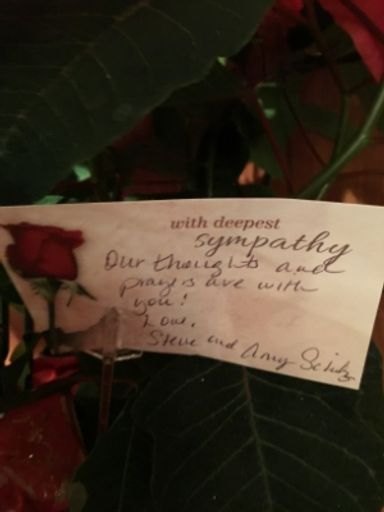 with deepest
sympathy
Our thoughts and
prayers are with
you!
Love,
Steve and Amy